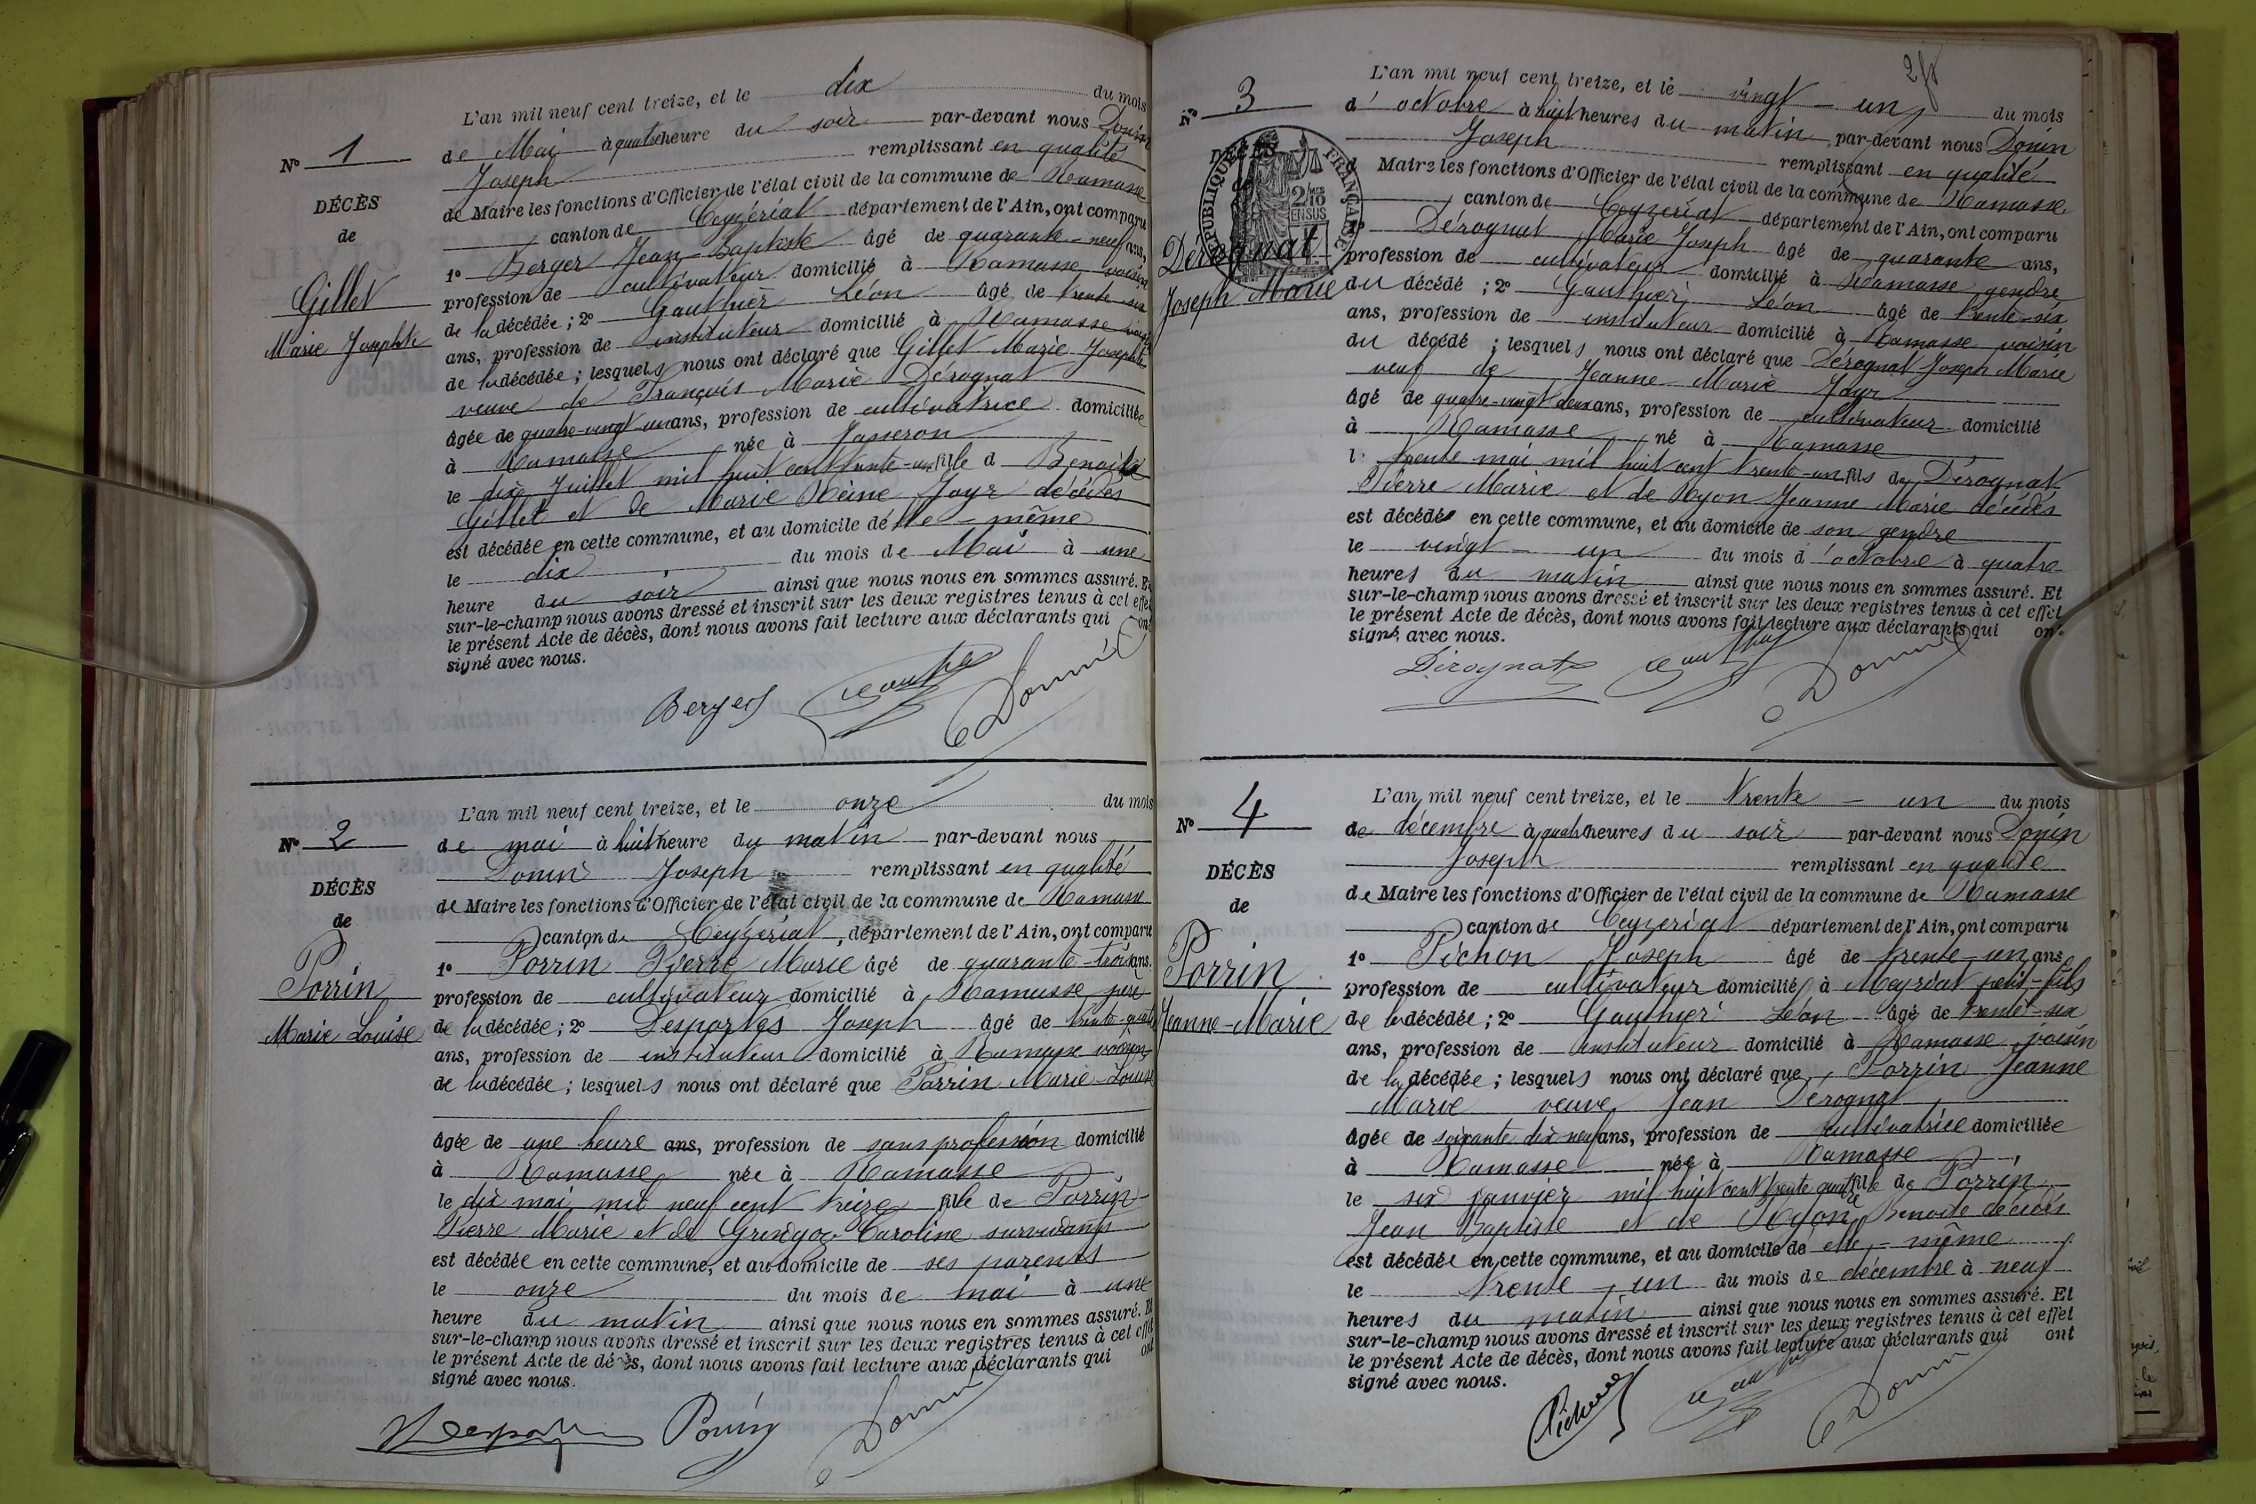 N° 1
DÉCÈS
de
Gillet
Marie Josephte
L'an mil neuf cent treize, et le dix du mois
de Mai à quatre heure du soir par-devant nous Donin
Joseph remplissant en qualité
de Maire les fonctions d'Officier de l'état civil de la commune de Ramasse
canton de Ceyzériat département de l'Ain, ont comparu
1° Berger Jean-Baptiste âgé de quarante-neuf ans,
profession de cultivateur domicilié à Ramasse voisin
de la décédée ; 2° Gauthier Léon âgé de trente-six
ans, profession de instituteur domicilié à Ramasse voisin
de la décédée ; lesquels nous ont déclaré que Gillet Marie Josephte
veuve de François Marie Dérognat
âgée de quatre-vingt-un ans, profession de cultivatrice domiciliée
à Ramasse née à Jasseron
le dix Juillet mil huit cent trente-un fille d Benoit
Gillet et de Marie Reine Jayr décédés
est décédée en cette commune, et au domicile d'elle-même
le dix du mois de Mai à une
heure du soir ainsi que nous nous en sommes assuré. Et
sur-le-champ nous avons dressé et inscrit sur les deux registres tenus à cet effet
le présent Acte de décès, dont nous avons fait lecture aux déclarants qui ont
signé avec nous.
Berger Gauthier Donin
N° 2
DÉCÈS
de
Porrin
Marie Louise
L'an mil neuf cent treize, et le onze du mois
de mai à huit heure du matin par-devant nous
Donin Joseph remplissant en qualité
de Maire les fonctions d'Officier de l'état civil de la commune de Ramasse
canton de Ceyzériat département de l'Ain, ont comparu
1° Porrin Pierre Marie âgé de quarante-trois ans,
profession de cultivateur domicilié à Ramasse père
de la décédée ; 2° Desportes Joseph âgé de trente-quatre
ans, profession de instituteur domicilié à Ramasse voisin
de la décédée ; lesquels nous ont déclaré que Porrin Marie-Louise
âgée de une heure ans, profession de sans profession domicilié
à Ramasse née à Ramasse
le dix mai mil neuf cent treize fille de Porrin
Pierre Marie et de Caroline survivants
est décédée en cette commune, et au domicile de ses parents
le onze du mois de mai à une
heure du matin ainsi que nous nous en sommes assuré. Et
sur-le-champ nous avons dressé et inscrit sur les deux registres tenus à cet effet
le présent Acte de décès, dont nous avons fait lecture aux déclarants qui ont
signé avec nous.
Porrin Donin
N° 3
DÉCÈS
de
RÉPUBLIQUE FRANÇAISE
2/10 EN SUS
Dérognat
Joseph Marie
L'an mil neuf cent treize, et le vingt-un du mois
d'octobre à huit heures du matin par-devant nous Donin
Joseph remplissant en qualité
d Maire les fonctions d'Officier de l'état civil de la commune de Ramasse
canton de Ceyzériat département de l'Ain, ont comparu
1° Dérognat Marie Joseph âgé de quarante ans,
profession de cultivateur domicilié à Ramasse gendre
du décédé ; 2° Gauthier Léon âgé de trente-six
ans, profession de instituteur domicilié à Ramasse voisin
du décédé ; lesquels nous ont déclaré que Dérognat Joseph Marie
veuf de Jeanne Marie Jayr
âgé de quatre-vingt deux ans, profession de cultivateur domicilié
à Ramasse né à Ramasse
l trente mai mil huit cent trente-un fils de Dérognat
Pierre Marie et de Ryon Jeanne Marie décédés
est décédé en cette commune, et au domicile de son gendre
le vingt-un du mois d'octobre à quatre
heures du matin ainsi que nous nous en sommes assuré. Et
sur-le-champ nous avons dressé et inscrit sur les deux registres tenus à cet effet
le présent Acte de décès, dont nous avons fait lecture aux déclarants qui ont
signé avec nous.
Dérognat Gauthier Donin
N° 4
DÉCÈS
de
Porrin
Jeanne-Marie
L'an mil neuf cent treize, et le trente-un du mois
de décembre à quatre heures du soir par-devant nous Donin
Joseph remplissant en qualité
de Maire les fonctions d'Officier de l'état civil de la commune de Ramasse
canton de Ceyzériat département de l'Ain, ont comparu
1° Pichon Joseph âgé de trente-un ans,
profession de cultivateur domicilié à Meyriat petit-fils
de la décédée ; 2° Gauthier Léon âgé de trente-six
ans, profession de instituteur domicilié à Ramasse voisin
de la décédée ; lesquels nous ont déclaré que Porrin Jeanne
Marie veuve Jean Dérognat
âgée de soixante dix neuf ans, profession de cultivatrice domiciliée
à Ramasse née à Ramasse
le six janvier mil huit cent trente quatre fille de Porrin
Jean Baptiste et de Ryon Benoite décédés
est décédée en cette commune, et au domicile de elle-même
le trente-un du mois de décembre à neuf
heures du matin ainsi que nous nous en sommes assuré. Et
sur-le-champ nous avons dressé et inscrit sur les deux registres tenus à cet effet
le présent Acte de décès, dont nous avons fait lecture aux déclarants qui ont
signé avec nous.
Pichon Gauthier Donin